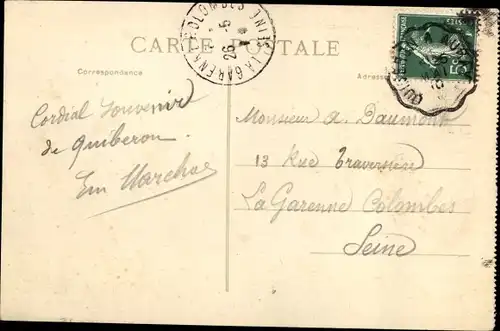 CARTE POSTALE
Correspondance
Adresse
LA GARENNE-COLOMBES SEINE
26 -5
5c
Cordial Souvenir
de Quiberon.
Em Marchas
Monsieur A. Daumont
13 Rue Traversière
La Garenne Colombes
Seine